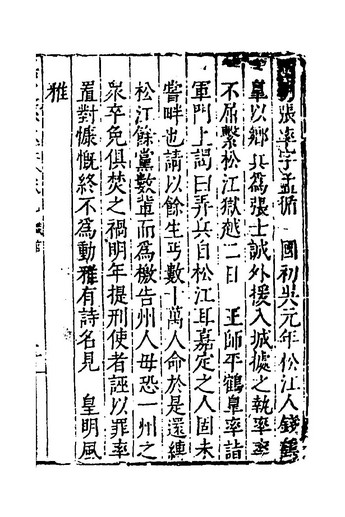 張率字孟循　國初吳元年松江人錢鶴
臯以鄉兵爲張士誠外援入城據之執率率
不屈繫松江獄越二日　王師平鶴臯率詣
軍門上謁曰弄兵自松江耳嘉定之人固未
嘗畔也請以餘生丐數十萬人命於是還練
松江餘黨數輩而爲檄告州人毋恐一州之
衆卒免俱焚之禍明年提刑使者誣以罪率
置對慷慨終不爲動雅有詩名見　皇明風
雅